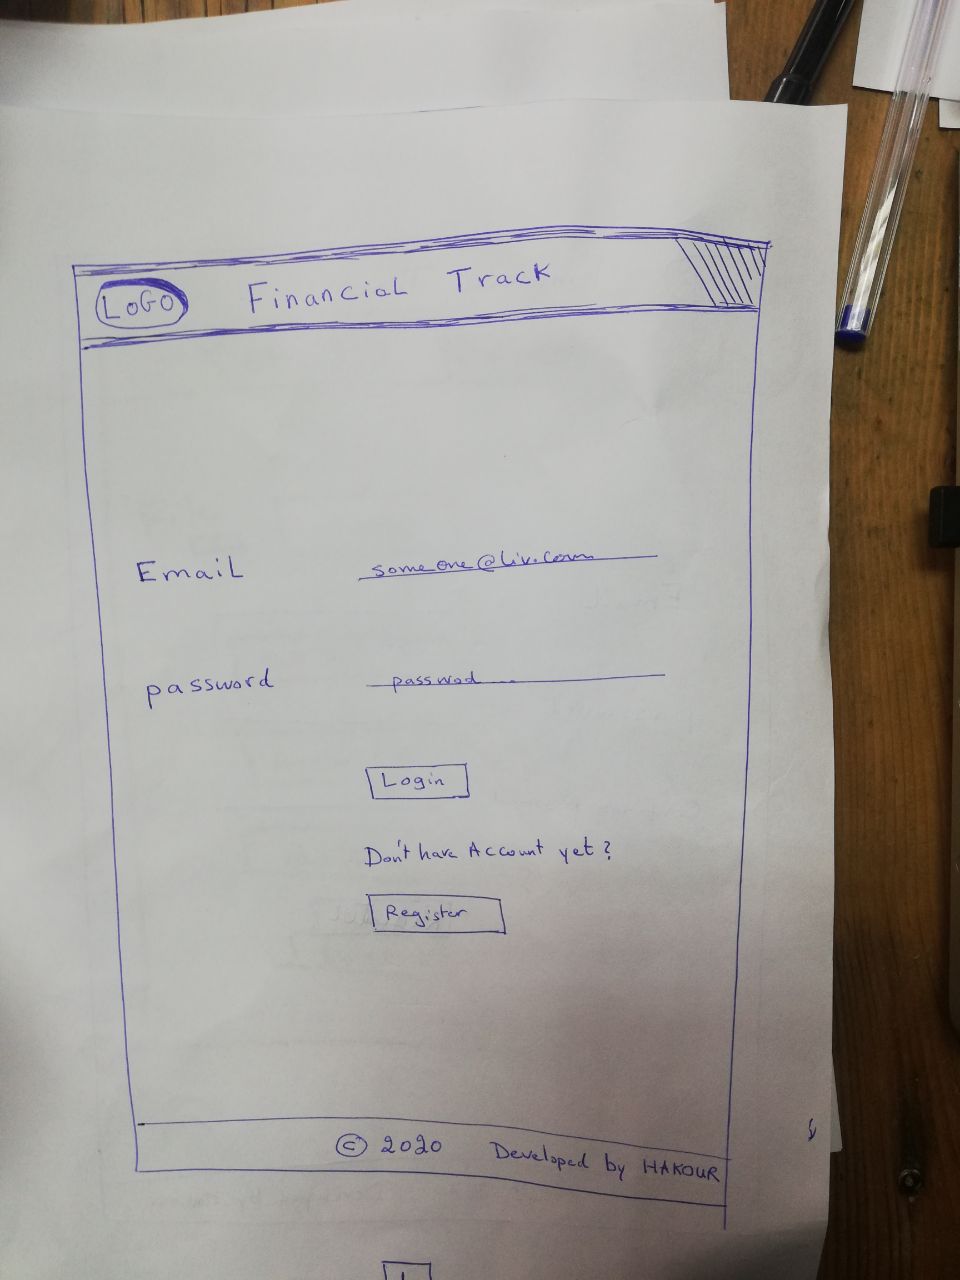 LOGO Financial Track
Email someone@liv.com
password passwod...
Login
Don't have Account yet?
Register
© 2020 Developed by HAKOUR